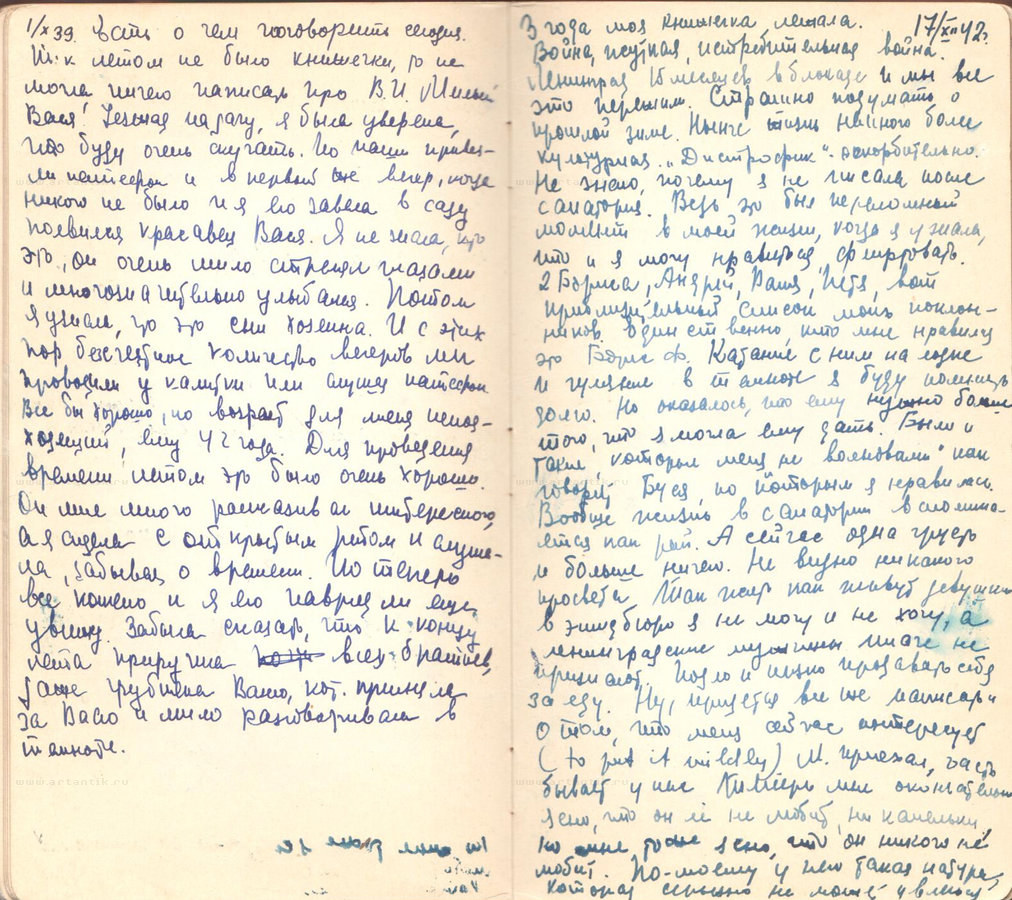 1/X 39. Есть о чем поговорить сегодня.
Т.к летом не было книжечки, то не
могла ничего написать про В.И. Милый
Вася! Уезжая на дачу, я была уверена,
что буду очень скучать. Но наши привез-
ли патефон и в первый же вечер, когда
никого не было и я его завела в саду
появился красавец Вася. Я не знала, кто
это, он очень мило стрелял глазами
и многозначительно улыбался. Потом
я узнала, что это сын хозяина. И с этих
пор бесчетное количество вечеров мы
проводили у калитки или слушая патефон
Все бы хорошо, но возраст для меня непод-
ходящий, ему 42 года. Для проведения
времени летом это было очень хорошо.
Он мне много рассказывал интересного,
а я сидела с открытым ртом и слуша-
ла, забывая о времени. Но теперь
все кончено и я его навряд ли еще
увижу. Забыла сказать, что к концу
лета приручила всех братьев,
даже грубияна Ваню, кот. принял
за Васю и мило разговаривал в
темноте.
17/XII 42г.
3 года моя книжечка лежала.
Война, жуткая, истребительная война.
Ленинград 15 месяцев в блокаде и мы все
это пережили. Страшно подумать о
прошлой зиме. Нынче жизнь много более
культурная. „Дистрофик“ - оскорбительно.
Не знаю, почему я не писала после
санатория. Ведь это был переломный
момент в моей жизни, когда я узнала,
что и я могу нравиться, флиртовать.
2 Бориса, Андрей, Ваня, Петя, вот
приблизительный список моих поклон-
ников. Единственно, кто мне нравился
это Борис Ф. Катание с ним на лодке
и гуляние в темноте я буду помнить
долго. Но оказалось, что ему нужно больше
того, что я могла ему дать. Были и
такие, которые меня не волновали" как
говорит Буся, но которым я нравилась.
Вообще жизнь в санатории вспомина-
ется как рай. А сейчас одна грусть
и больше ничего. Не видно никакого
просвета. Так жить как живут девушки
в этом бюро я не могу и не хочу, а
ленинградские мужчины иначе не
признают. Подло и низко продавать себя
за еду. Ну, придется все же написать
о том, что меня сейчас интересует
(to put it mildly) М. приехал, часто
бывает у нас. Теперь мне окончательно
ясно, что он её не любит, ни капельки,
но мне тоже ясно, что он никого не
любит. По-моему у него такая натура,
которая серьезно не может увлечься
www.artantik.ru